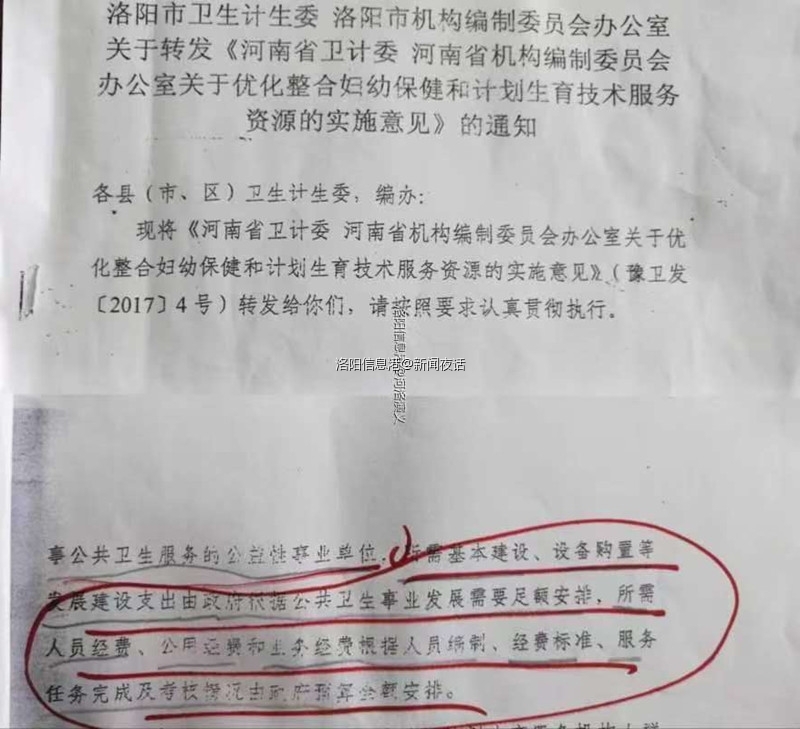 洛阳市卫生计生委 洛阳市机构编制委员会办公室
关于转发《河南省卫计委 河南省机构编制委员会
办公室关于优化整合妇幼保健和计划生育技术服务
资源的实施意见》的通知
各县（市、区）卫生计生委，编办：
现将《河南省卫计委 河南省机构编制委员会办公室关于优
化整合妇幼保健和计划生育技术服务资源的实施意见》（豫卫发
〔2017〕4号）转发给你们，请按照要求认真贯彻执行。
洛阳信息港@新闻夜话
洛阳信息港@河洛演义
事公共卫生服务的公益性事业单位，所需基本建设、设备购置等
发展建设支出由政府根据公共卫生事业发展需要足额安排，所需
人员经费、公用经费和业务经费根据人员编制、经费标准、服务
任务完成及考核情况由政府预算全额安排。